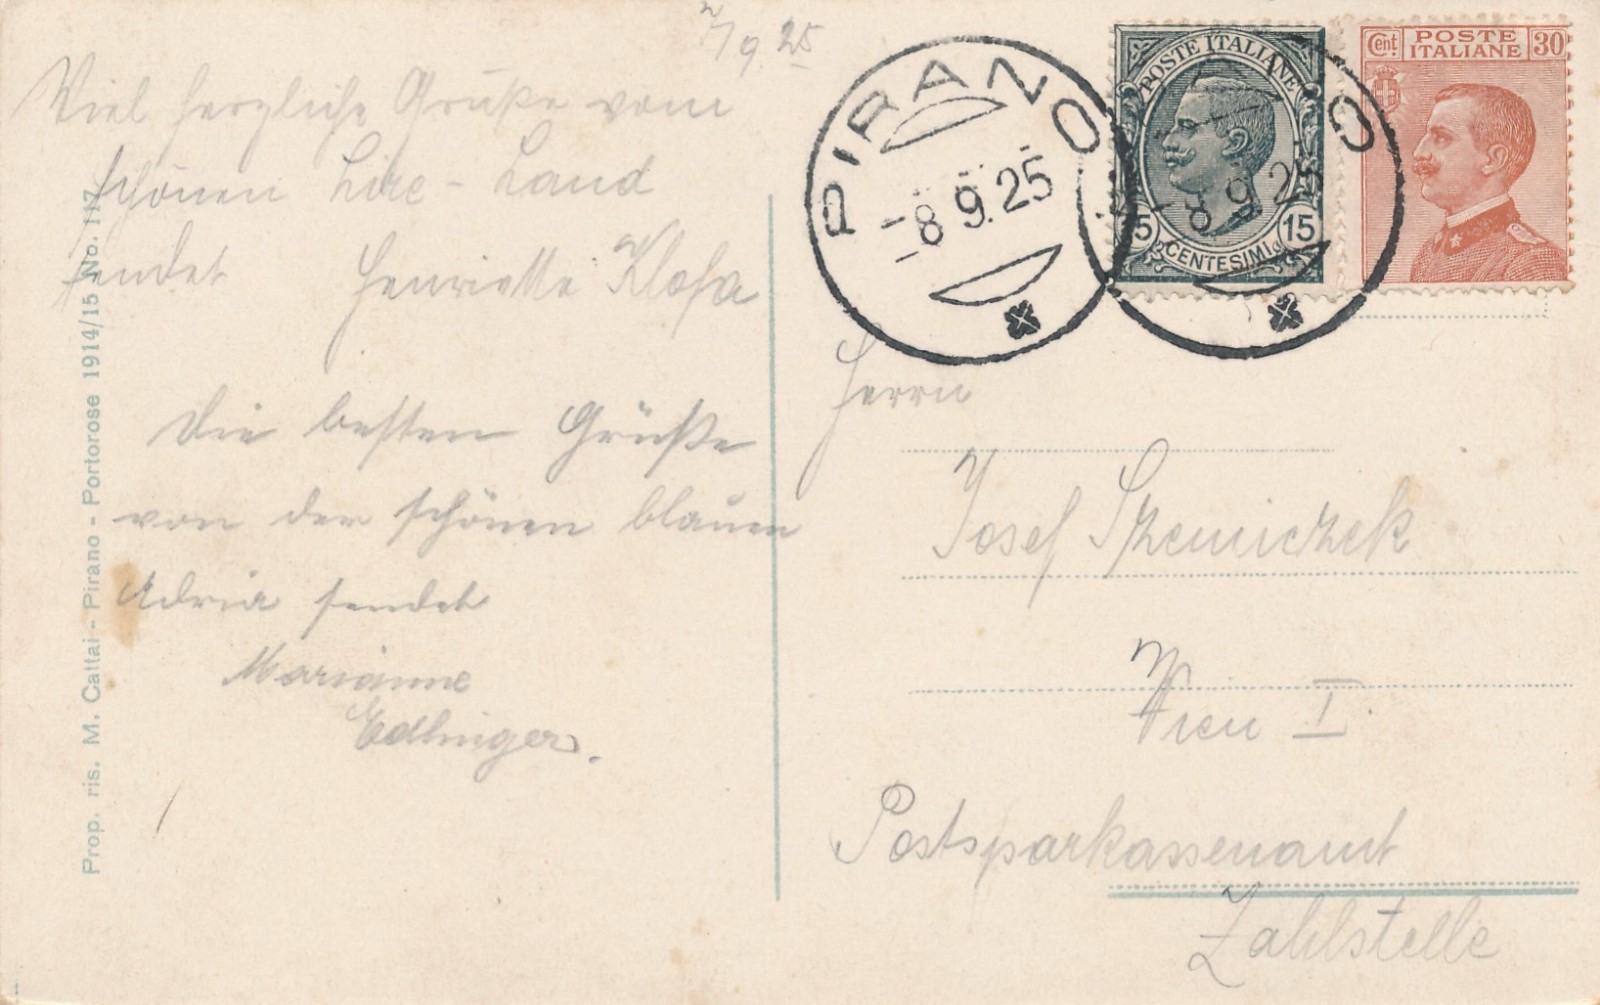 7/9 25
Viel herzliche Grüße vom
schönen Lire-Land
sendet Henriette Klofa
Die besten Grüße
von der schönen blauen
Adria sendet
Marianne
Edlinger.
Prop. ris. M. Cattai - Pirano - Portorose 1914/15 No. 117
PIRANO
8 9.25
POSTE ITALIANE
15 15
CENTESIMI
O
8 9.25
Cent POSTE ITALIANE 30
Herrn
Josef
Wien I.
Postsparkassenamt
Zahlstelle